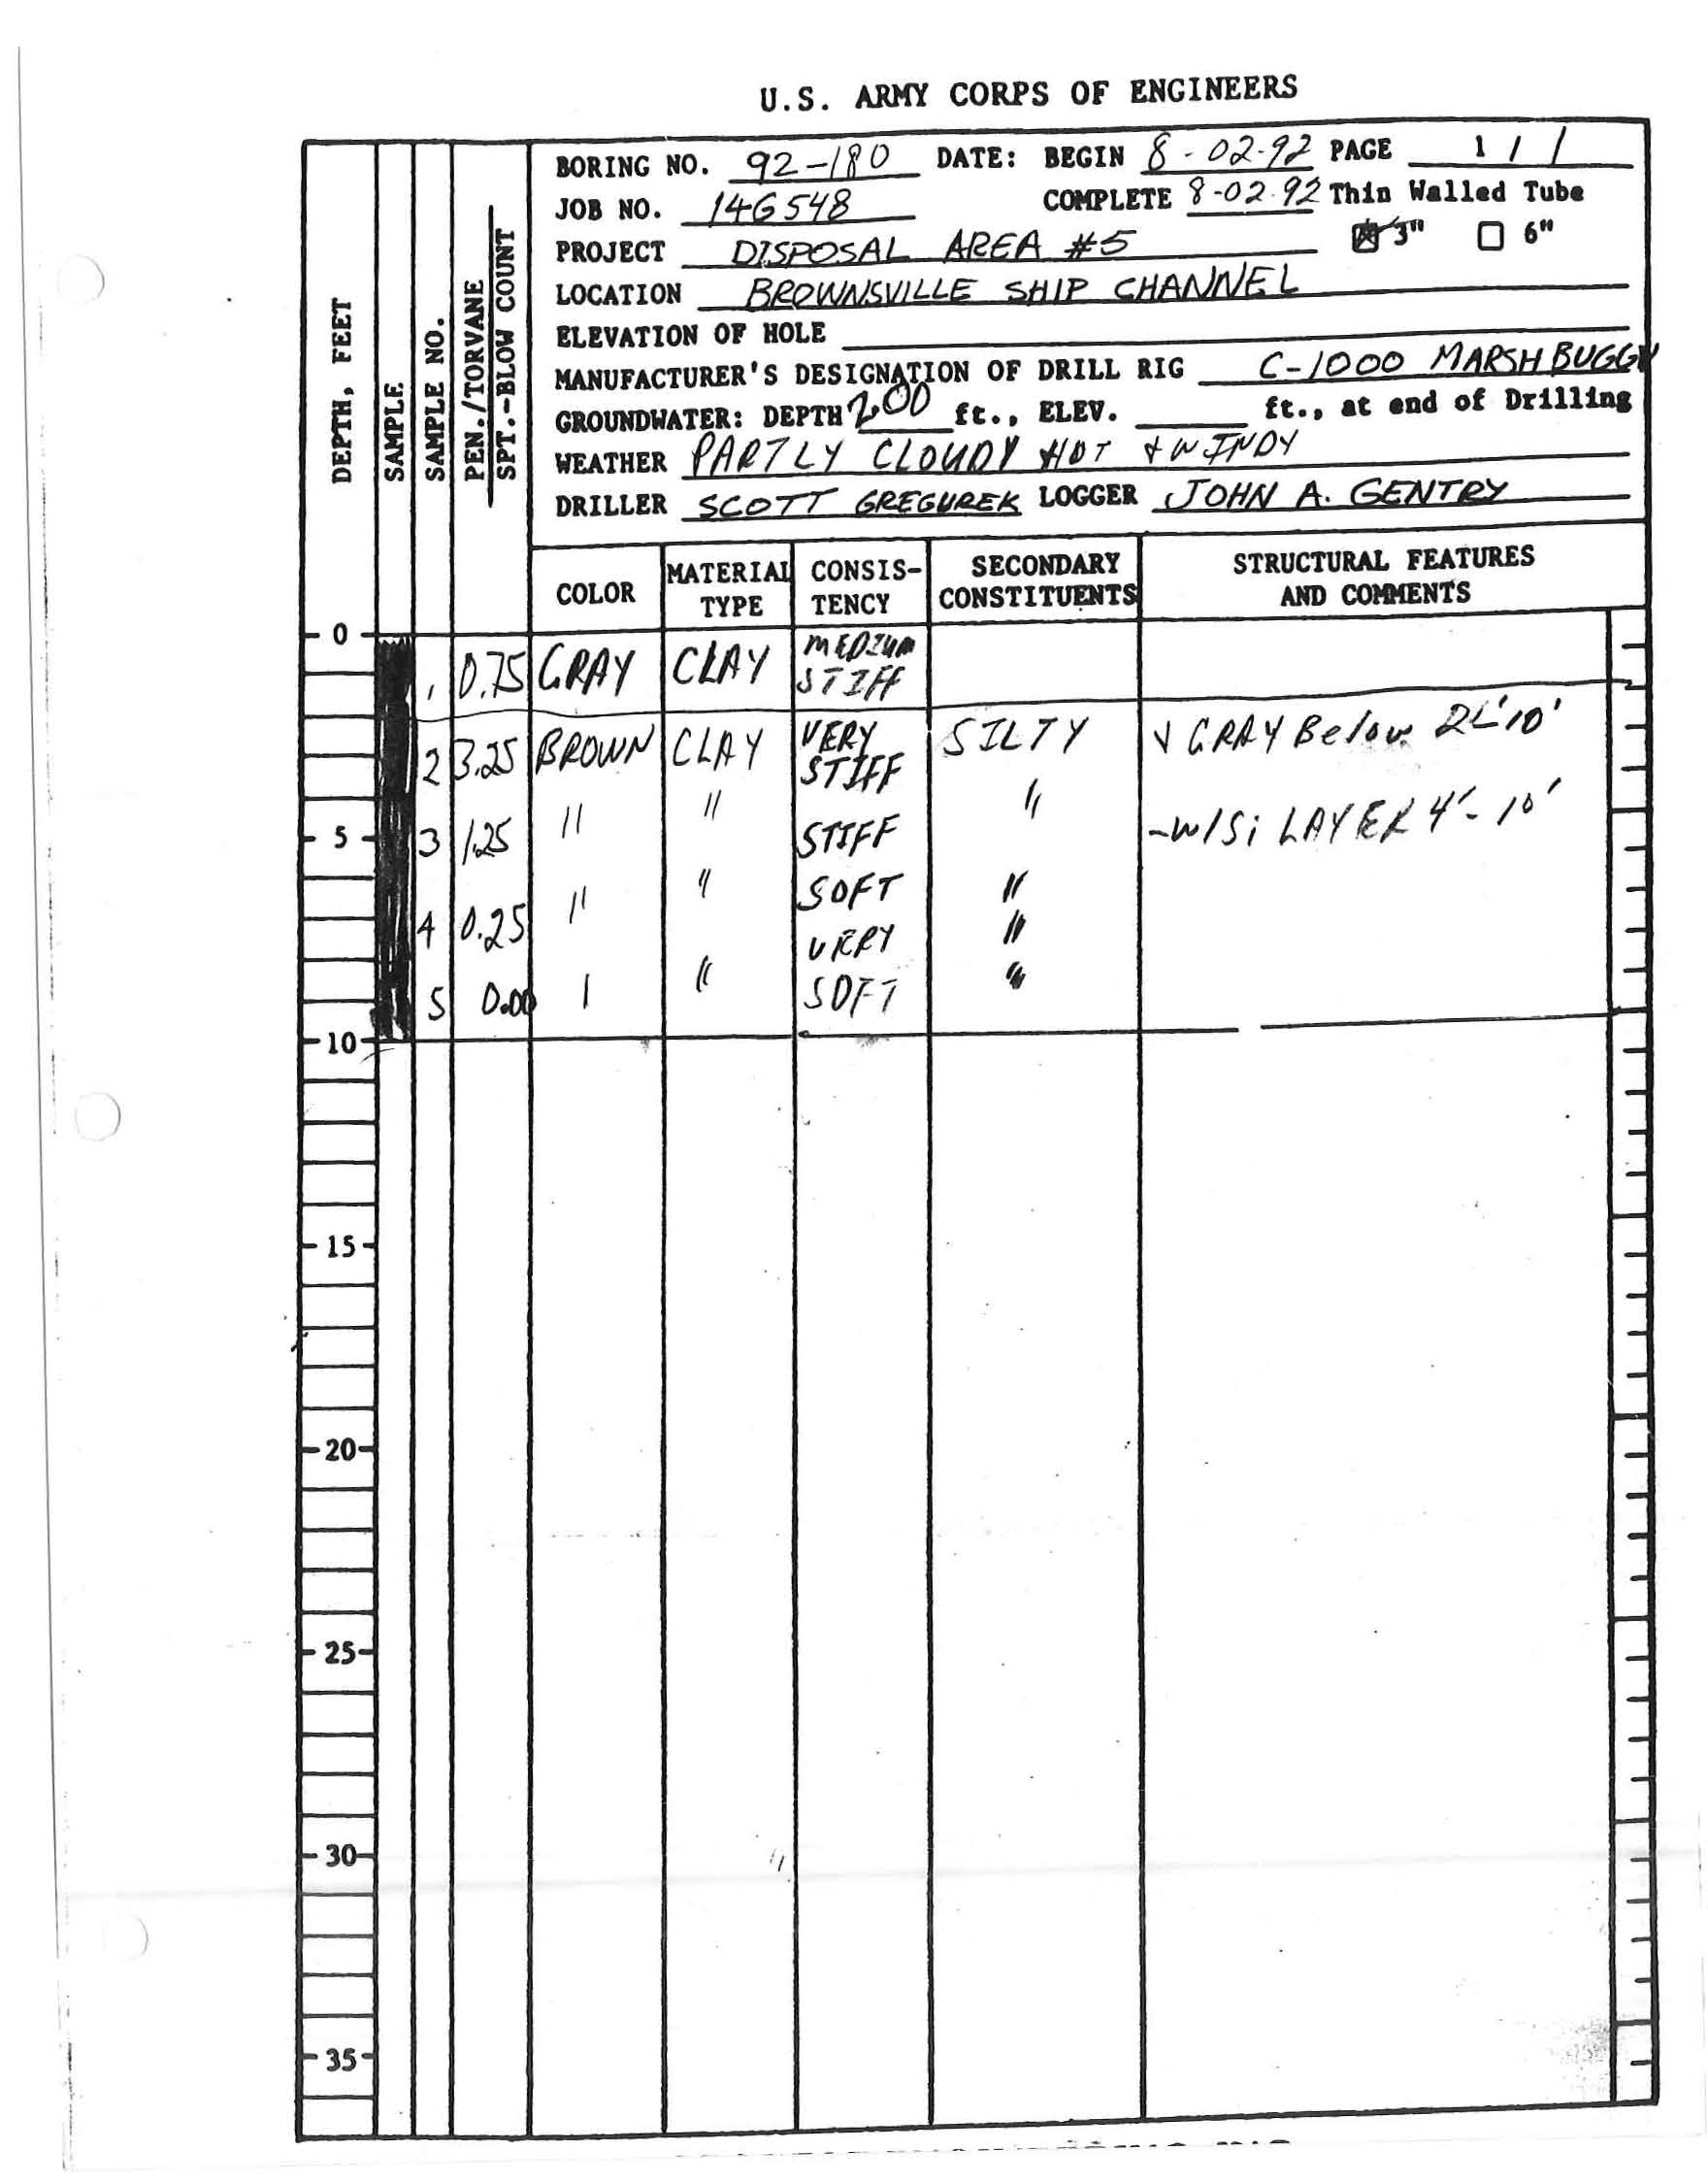 U.S. ARMY CORPS OF ENGINEERS
BORING NO. 92-180 DATE: BEGIN 8-02-92 PAGE 1 / 1
JOB NO. 14G548 COMPLETE 8-02-92 Thin Walled Tube
PROJECT DISPOSAL AREA #5 3" 6"
LOCATION BROWNSVILLE SHIP CHANNEL
ELEVATION OF HOLE
MANUFACTURER'S DESIGNATION OF DRILL RIG C-1000 MARSH BUGGY
GROUNDWATER: DEPTH 2.00 ft., ELEV. ft., at end of Drilling
WEATHER PARTLY CLOUDY HOT + WINDY
DRILLER SCOTT GREGUREK LOGGER JOHN A. GENTRY
DEPTH, FEET
SAMPLE
SAMPLE NO.
PEN./TORVANE
SPT.-BLOW COUNT
COLOR
MATERIAL
TYPE
CONSIS-
TENCY
SECONDARY
CONSTITUENTS
STRUCTURAL FEATURES
AND COMMENTS
0
1 0.75 GRAY CLAY MEDIUM
STIFF
2 3.25 BROWN CLAY VERY
STIFF SILTY GRAY Below
5 3 1.25 " " STIFF " -W/Si LAYER 4'-10'
4 0.25 " " SOFT "
VERY "
5 0.00 " SOFT "
10
15
20
25
30
35